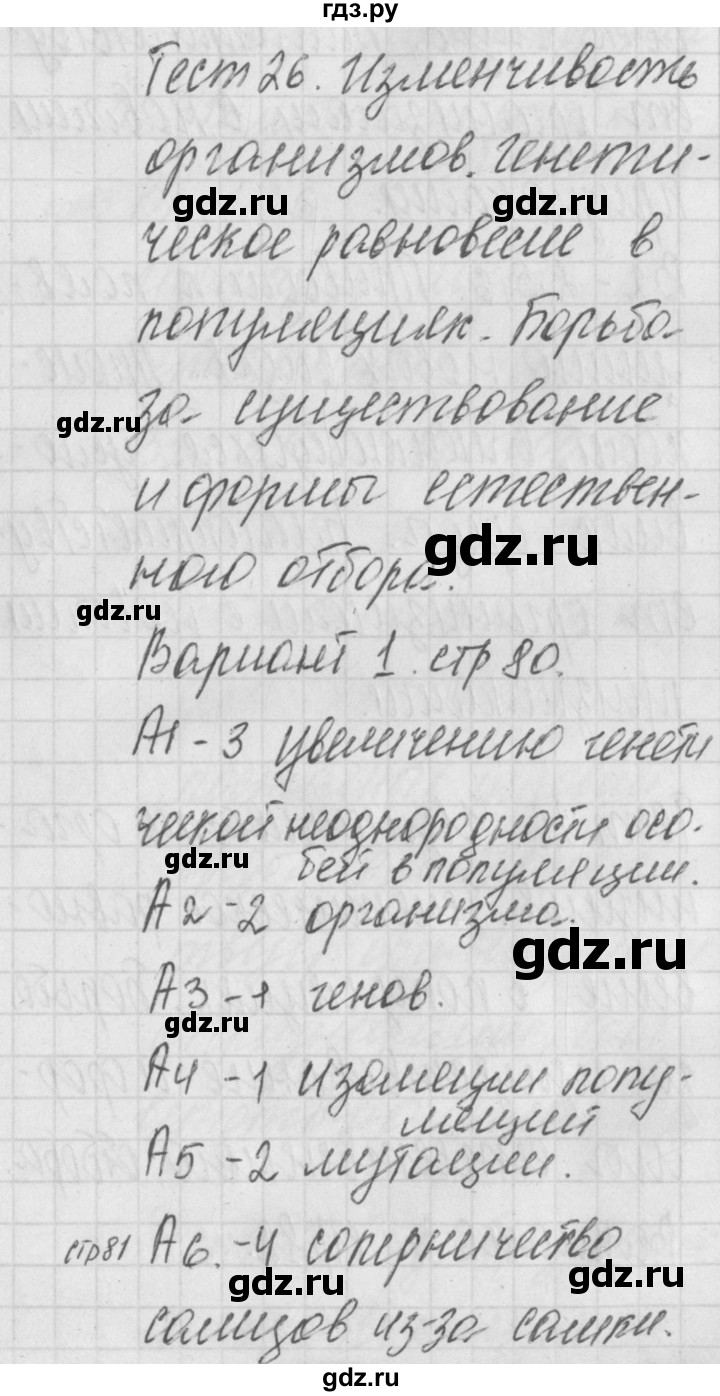 гдз.ру
Тест 26. Изменчивость
организмов. Генети-
gdz.ru gdz.ru
ческое равновесие в
популяциях. Борьба
за существование
gdz.ru
и формы естествен-
gdz.ru
ного отбора.
gdz.ru
Вариант 1. стр 80.
А1 - 3 увеличению генети
ческой неоднородности осо-
gdz.ru бей в популяции.
А2 - 2 организма.
gdz.ru
А3 - 1 генов.
gdz.ru
А4 - 1 изоляции попу-
ляций
А5 - 2 мутации.
стр81 А6. - 4 соперничество
gdz.ru gdz.ru
самцов из-за самки.
gdz.ru